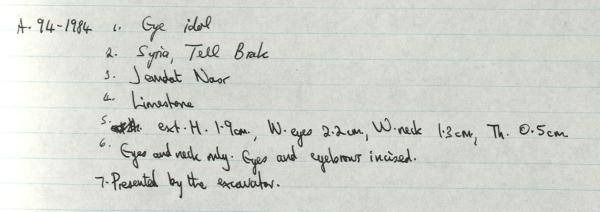 A. 94-1984 1. Eye idol
2. Syria, Tell Brak
3. Jemdat Nasr
4. Limestone
5. ext. H. 1.9cm, W. eyes 2.2cm, W. neck 1.3cm, Th. 0.5cm
6. Eyes and neck only. Eyes and eyebrows incised.
7. Presented by the excavator.